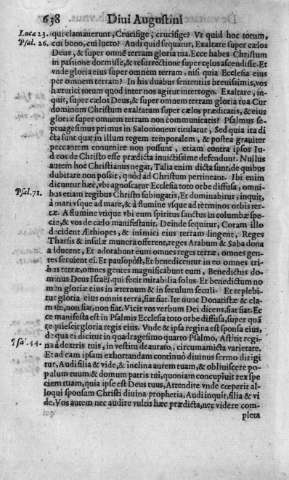 638 Diui Augustini
Luca 23. qui clamauerunt, Crucifige, crucifige? Vt quid hoc totum,
Psal. 56. cui bono, cui lucro? Audi quid sequatur, Exaltare super cælos
Deus, & super omnē terram gloria tua. Ecce habes Christum
in passione dormisse, & resurrectione super cælos ascendisse. Et
vnde gloria eius super omnem terram, nisi quia Ecclesia eius
per omnem terram? In his duabus sententiis breuissimis, vos
hæretici totum quod inter nos agitur interrogo. Exaltare, in-
quit, super cælos Deus, & super omnem terram gloria tua Cur
dominum Christum exaltatum super cælos prædicatis, & eius
gloriæ super omnem terram non communicatis? Psalmus se-
ptuagesimus primus in Salomonem titulatur, Sed quia ita di
cta sunt quæ in illum regem temporalem, & postea grauiter
peccantem conuenire non possunt, etiam contra ipsos Iu-
dæos de Christo esse prædicta inuictissime defendunt. Nullus
autem hoc Christianus negat. Talia enim dicta sunt, de quibus
dubitare non possit, quod ad Christum pertineant. Ibi enim
dicitur
Psal. 71. bus etiam regibus Christo subiugatis, Et dominabitur, inquit,
à mari vsque ad mare, & à flumine vsque ad terminos orbis ter-
ræ. A flumine vtique vbi eum spiritus sanctus in columbæ spe-
cie, & vox de cælo manifestauit. Deinde sequitur, Coram illo
decident Æthiopes, & inimici eius terram lingent, Reges
Tharsis & insulæ munera offerent, reges Arabum & Saba dona
adducent, Et adorabunt eum omnes reges terræ, omnes gen-
tes seruient ei. Et paulopost, Et benedicentur in eo omnes tri-
bus terræ, omnes gentes magnificabunt eum, Benedictus do-
minus Deus Israël qui fecit mirabilia solus. Et benedictum no
mē gloriæ eius in æternum & in seculum seculi. Et replebi-
tur gloria eius omnis terra, fiat fiat. Ite nunc Donatistæ & cla-
mate, non fiat, non fiat. Vicit vos verbum Dei dicens, fiat fiat. Et
manifesta est in Psalmis Ecclesia toto orbe diffusa, super quā
requiescit gloria regis eius. Vnde & ipsa regina est sponsa eius,
Psa. 44. de qua ei dicitur in quadragesimo quarto Psalmo, Astitit regi-
na à dextris tuis, in vestitu deaurato, circumamicta varietate.
Et ad eam ipsam exhortandam continuò diuinus sermo dirigi
tur, Audi filia & vide, & inclina aurem tuam, & obliuiscere po-
pulum tuum & domum patris tui, quoniam concupiuit rex spe
ciem tuam, quia ipse est Deus tuus, Attendite vnde cœperit al-
loqui sponsam Christi diuina prophetia. Audi inquit, filia & vi
de. Vos autem nec audire vultis hæc prædicta, nec videre com-
pleta